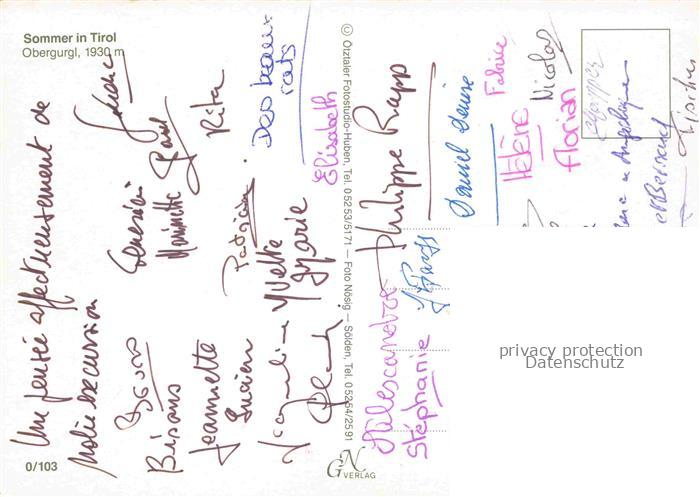 Sommer in Tirol
Obergurgl, 1930 m
Une pensée affectueusement de
notre excursion
Bisous
Bisous
Jeannette
Lucien
Jacqueline
Geneviève
Marinette
Paul
Rita
Patricia
Yvette
Marie
Des beaux
rats
Elisabeth
© Ötztaler Fotostudio-Huben, Tel. 05253/5171 — Foto Nösig — Sölden, Tel. 05254/2591
Philippe Rapp
Alescandre
Stéphanie
Daniel Denise
Fabrice
Hélène
Nicolas
Florian
Angélique
et Bernard
privacy protection
Datenschutz
0/103
GN VERLAG